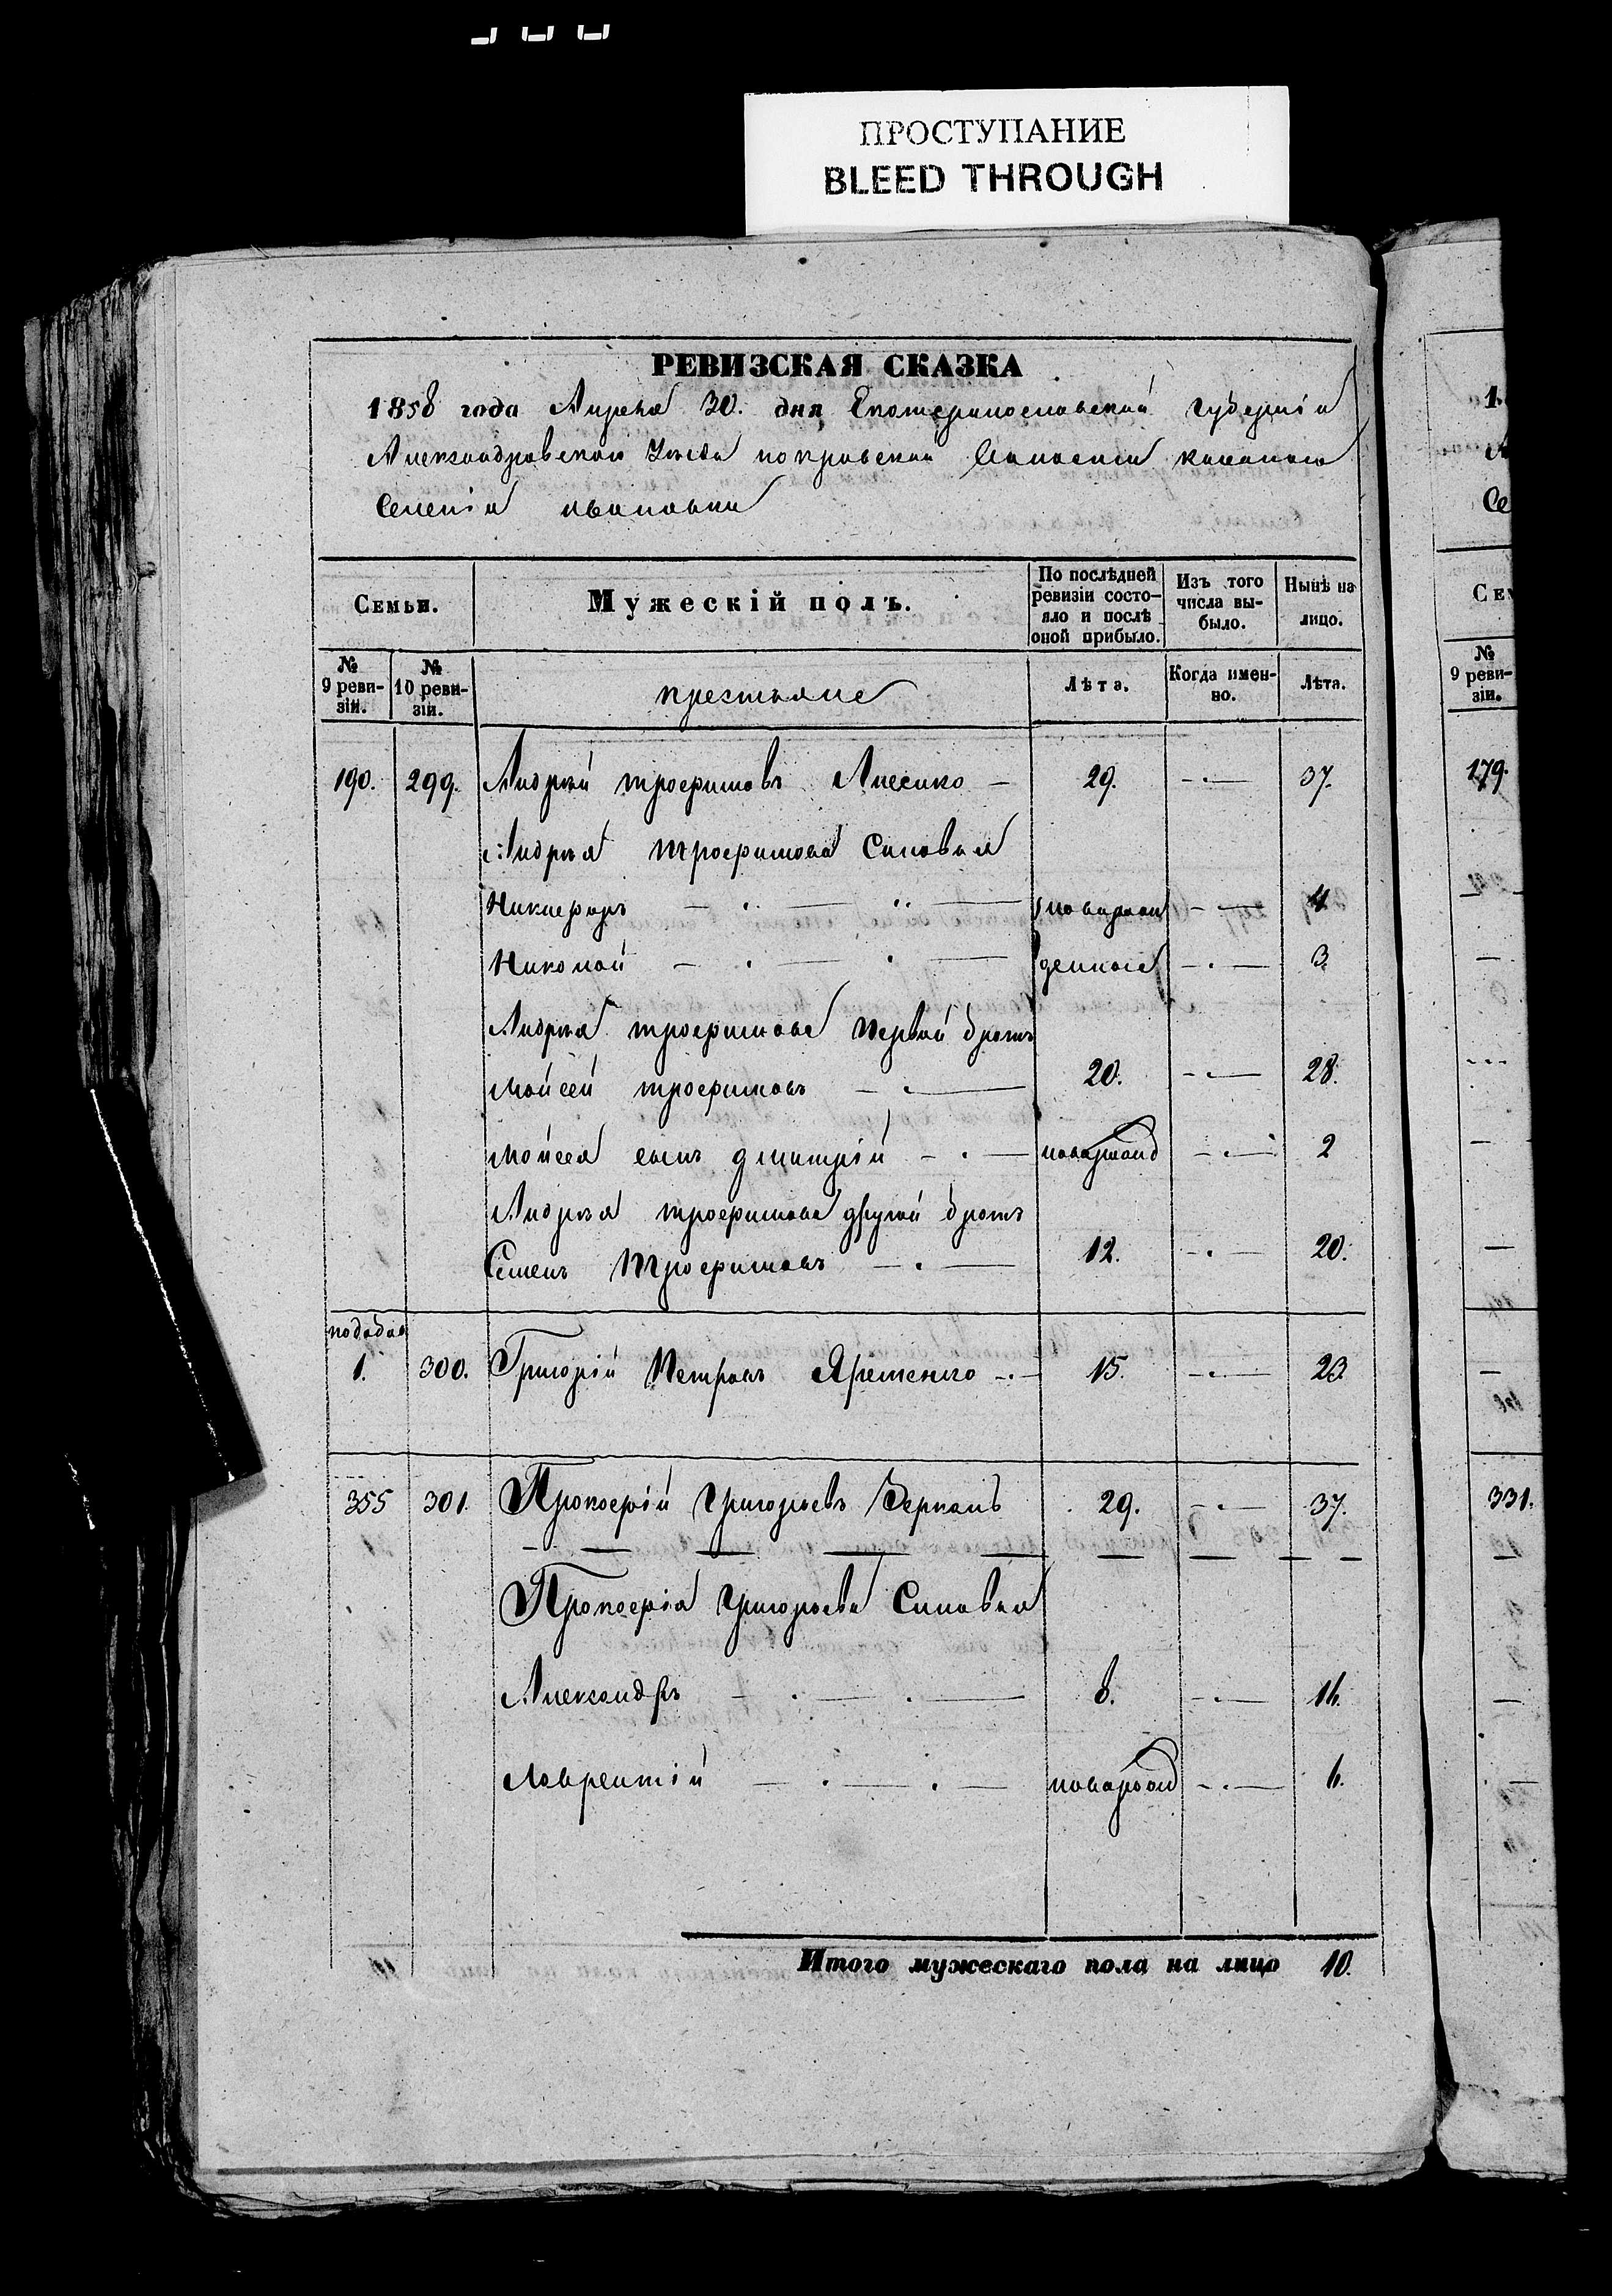 ПРОСТУПАНИЕ
BLEED THROUGH
РЕВИЗСКАЯ СКАЗКА
1858 года Апреля 30. дня Екатеринославской губернии
Александровского Уезда покровской Волости казенного
Селения
Семьи.
Мужескій полъ.
По послѣдней ревизіи состояло и послѣ оной прибыло.
Изъ того числа выбыло.
Нынѣ на лицо.
№ 9 ревизіи.
№ 10 ревизіи.
крестьяне
Лѣта.
Когда именно.
Лѣта.
190. 299. Андрей трофимовъ 29. 37.
Андрея трофимова Сыновья
Никифоръ новорож 4
Николай денные 3.
Андрея трофимова первый братъ
Мойсей трофимовъ 20. 28.
Мойсея сынъ дмитрій новорожд 2
Андрея трофимова другой братъ
Семенъ трофимовъ 12. 20.
1. 300. Григорій Петровъ Яременко 15. 23
355 301. Прокофій Григорьевъ 29. 37.
Прокофія Григорьева Сыновья
Александръ 8. 16.
Лаврентій новорожд 6.
Итого мужескаго пола на лицо 10.
1.
Се
Сем
№ 9 ревизіи.
179.
331.